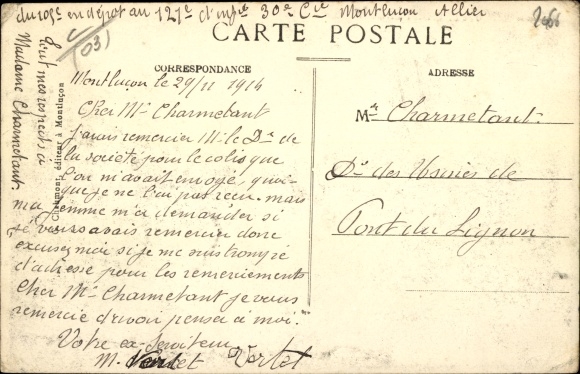 du 105e en dépot au 121e d'inf ie 30e Cie Montluçon Allier
266
(03)
CARTE POSTALE
CORRESPONDANCE
ADRESSE
Montluçon le 29/11 1914
Cher Mr Charmetant
j'avais remercier Mr le Dr de
la société pour le colis que
l'on m'avait envoyé, quoi-
que je ne l'ai pas recu. mais
ma femme m'a demander si
je vous avais remercier donc
excusez moi si je me suis trompé
d'adresse pour les remerciements
Cher Mr Charmetant je vous
remercie d'avoir pensé a moi.
Votre ex-Serviteur
M. Vertet Vertet
tout mes respects a
Madame Charmetant.
éditeur à Montluçon
Mr Charmetant
Dr des Usines de
Pont du Lignon